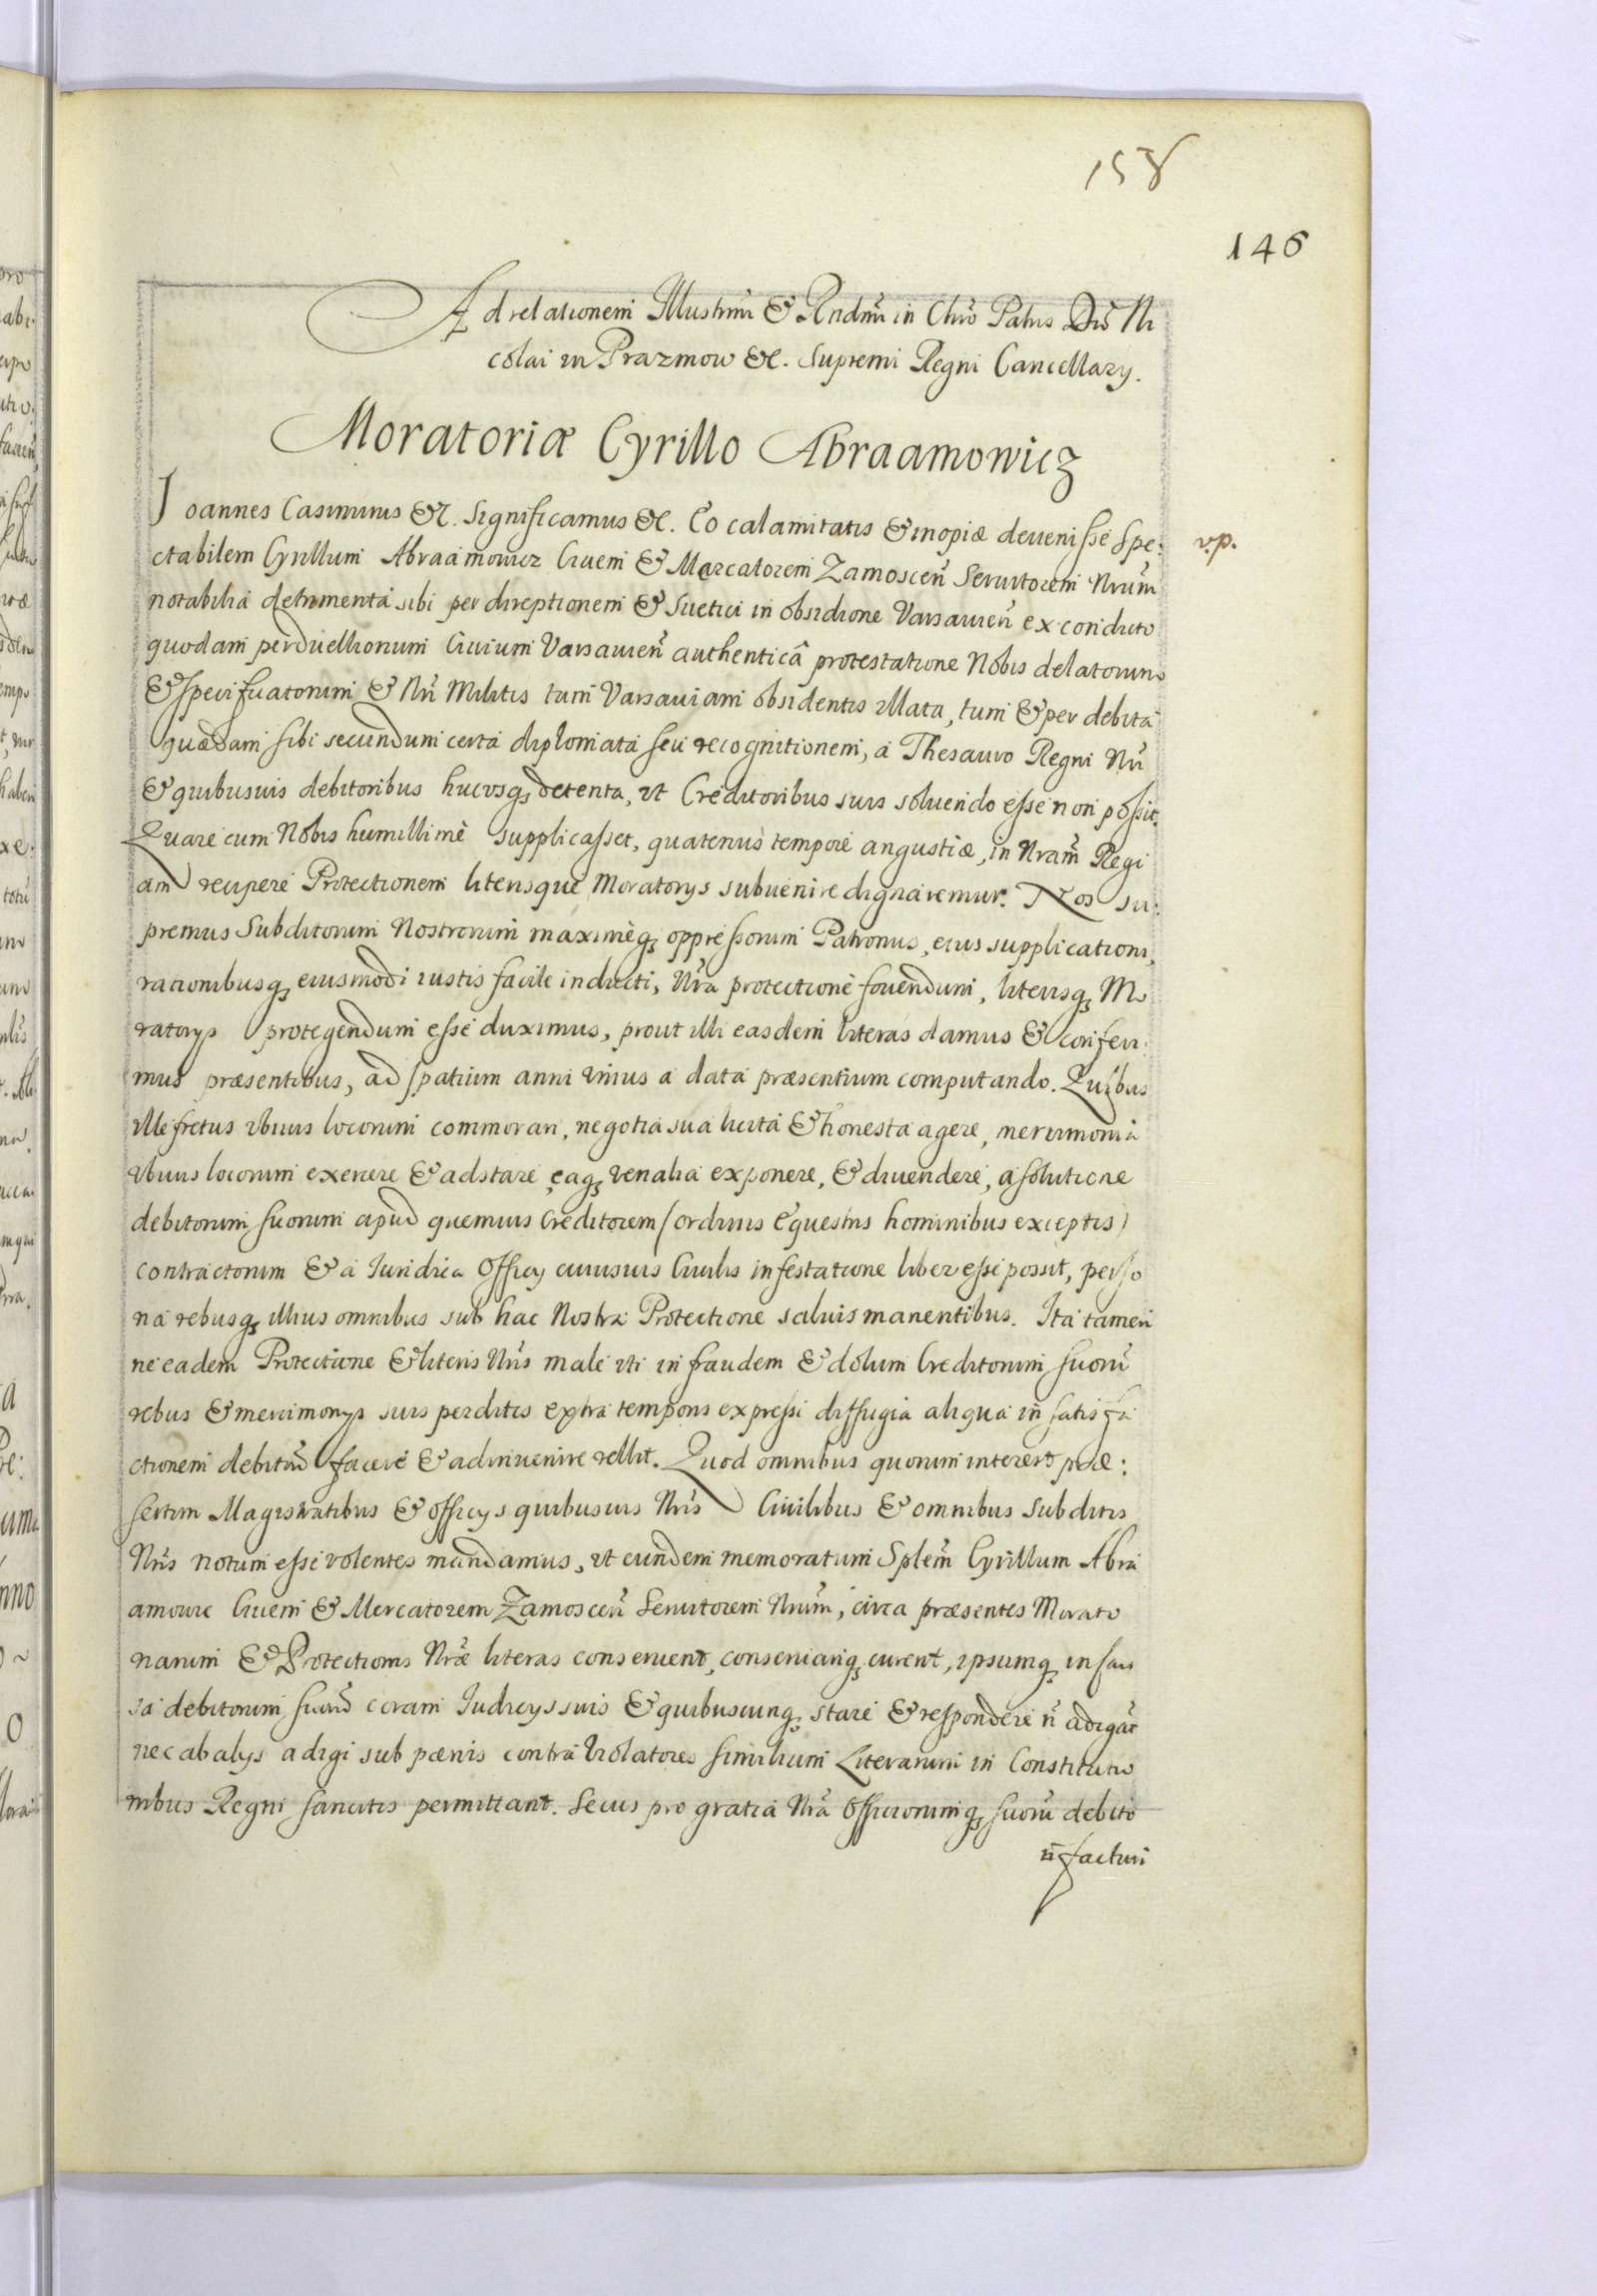 158
146
Ad relationem Illustrmi & Rndmi in Chro Patris Dni Ni
colai in Prazmow &c. Supremi Regni Cancellary.
Moratoriæ Cyrillo Abraamowicz
Ioannes Casimirus &c. Significamus &c. Eo calamitatis & inopiæ deuenisse Spe: v.p.
ctabilem Cyrillum Abraamowicz Ciuem & Mercatorem Zamoscen̄ Seruitorem Nrum̄
notabilia detrimenta sibi per direptionem & Suetici in obsidione Varsauien̄ ex condicto
quodam perduellionum Ciuium Varsauien̄ authenticâ protestatione Nobis delatorum
& specificatorum & Nri Militis tum Varsauiam obsidentis illata, tum & per debita
quædam sibi secundum certa diplomata seu recognitionem, a Thesauro Regni Nri
& quibusuis debitoribus hucusq, detenta, ut Creditoribus suis soluendo esse non possit.
Quare cum Nobis humillimè supplicasset, quatenus tempore angustiæ, in Nram̄ Regi
am recipere Protectionem literisque Moratorys subuenire dignaremur. Nos su:
premus Subditorum Nostrorum maximèq, oppressorum Patronus, eius supplicationi,
rationibusq, eiusmodi iustis facile inducti, Nra protectione fouendum, literisq, Mo
ratorys protegendum esse duximus, prout illi easdem literas damus & conferi:
mus præsentibus, ad spatium anni vnius a data præsentium computando. Quibus
ille fretus vbiuis locorum commorari, negotia sua licita & honesta agere, mercimonia
vbiuis locorum exercere & adstare eaq, venalia exponere, & diuendere, a solutione
debitorum suorum apud quemuis Creditorem (ordinis Equestris hominibus exceptis)
contractorum & a Iuridica Officy cuiusuis Ciuilis infestatione liber esse possit, perso
na rebusq, illius omnibus sub hac Nostra Protectione saluis manentibus. Ita tamen
ne eadem Protectione & literis Nris male vti in fraudem & dolum Creditorum suorū
rebus & mercimonys suis perditis extra temporis expressi diffugia aliqua in satisfa
ctionem debitorū facere & adinuenire vellit. Quod omnibus quorum interest præ:
sertim Magistratibus & Officys quibusuis Nris Ciuilibus & omnibus subditis
Nris notum esse volentes mandamus, vt eundem memoratum Splem̄ Cyrillum Abra
amowic Ciuem & Mercatorem Zamoscen̄ Seruitorem Nrum̄, circa præsentes Morato
riarum & Protectionis Nræ literas conseruent, conseruariq, curent, ipsumq, in cau
sa debitorum suorū coram Iudicys suis & quibuscunq, stare & respondere n̄ adigāt
nec ab alys adigi sub pænis contra Violatores similium Literarum in Constitutio
nibus Regni sancitis permittant. Secus pro gratia Nra Officiorumq, suorū debito
n̄ facturi